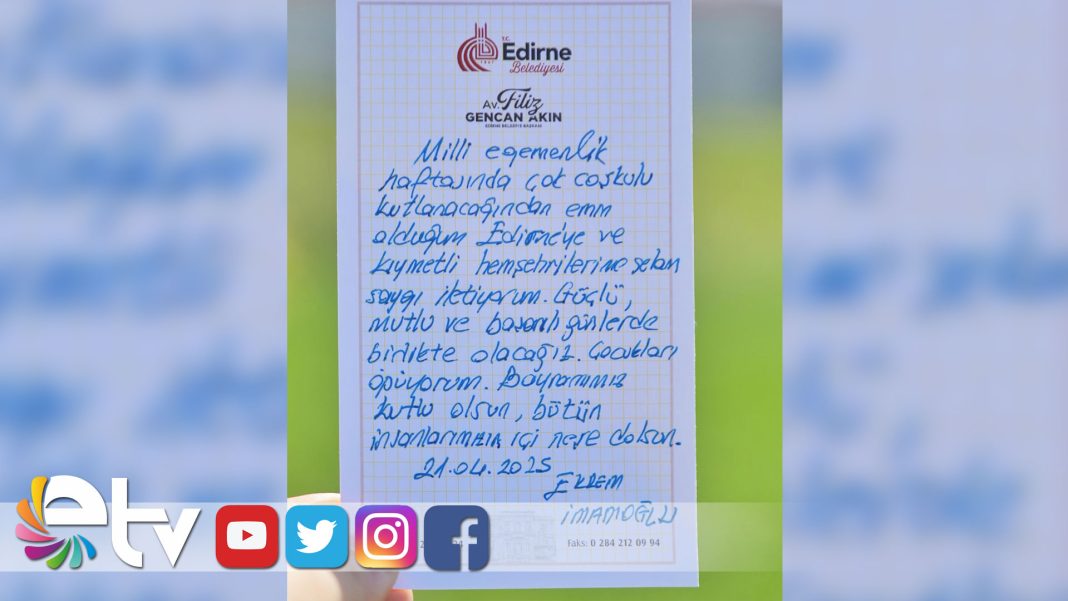 T.C.
Edirne
Belediyesi
1361
Av. Filiz
GENCAN AKIN
EDİRNE BELEDİYE BAŞKANI
Milli egemenlik
haftasında çok coşkulu
kutlanacağından emin
olduğum Edirne'ye ve
kıymetli hemşehrilerime selam
saygı iletiyorum. Güçlü,
mutlu ve başarılı günlerde
birlikte olacağız. Çocukları
öpüyorum. Bayramımız
kutlu olsun, bütün
insanlarımızın içi neşe dolsun.
21.04.2025
EKREM
İMAMOĞLU
Faks: 0 284 212 09 94
etv